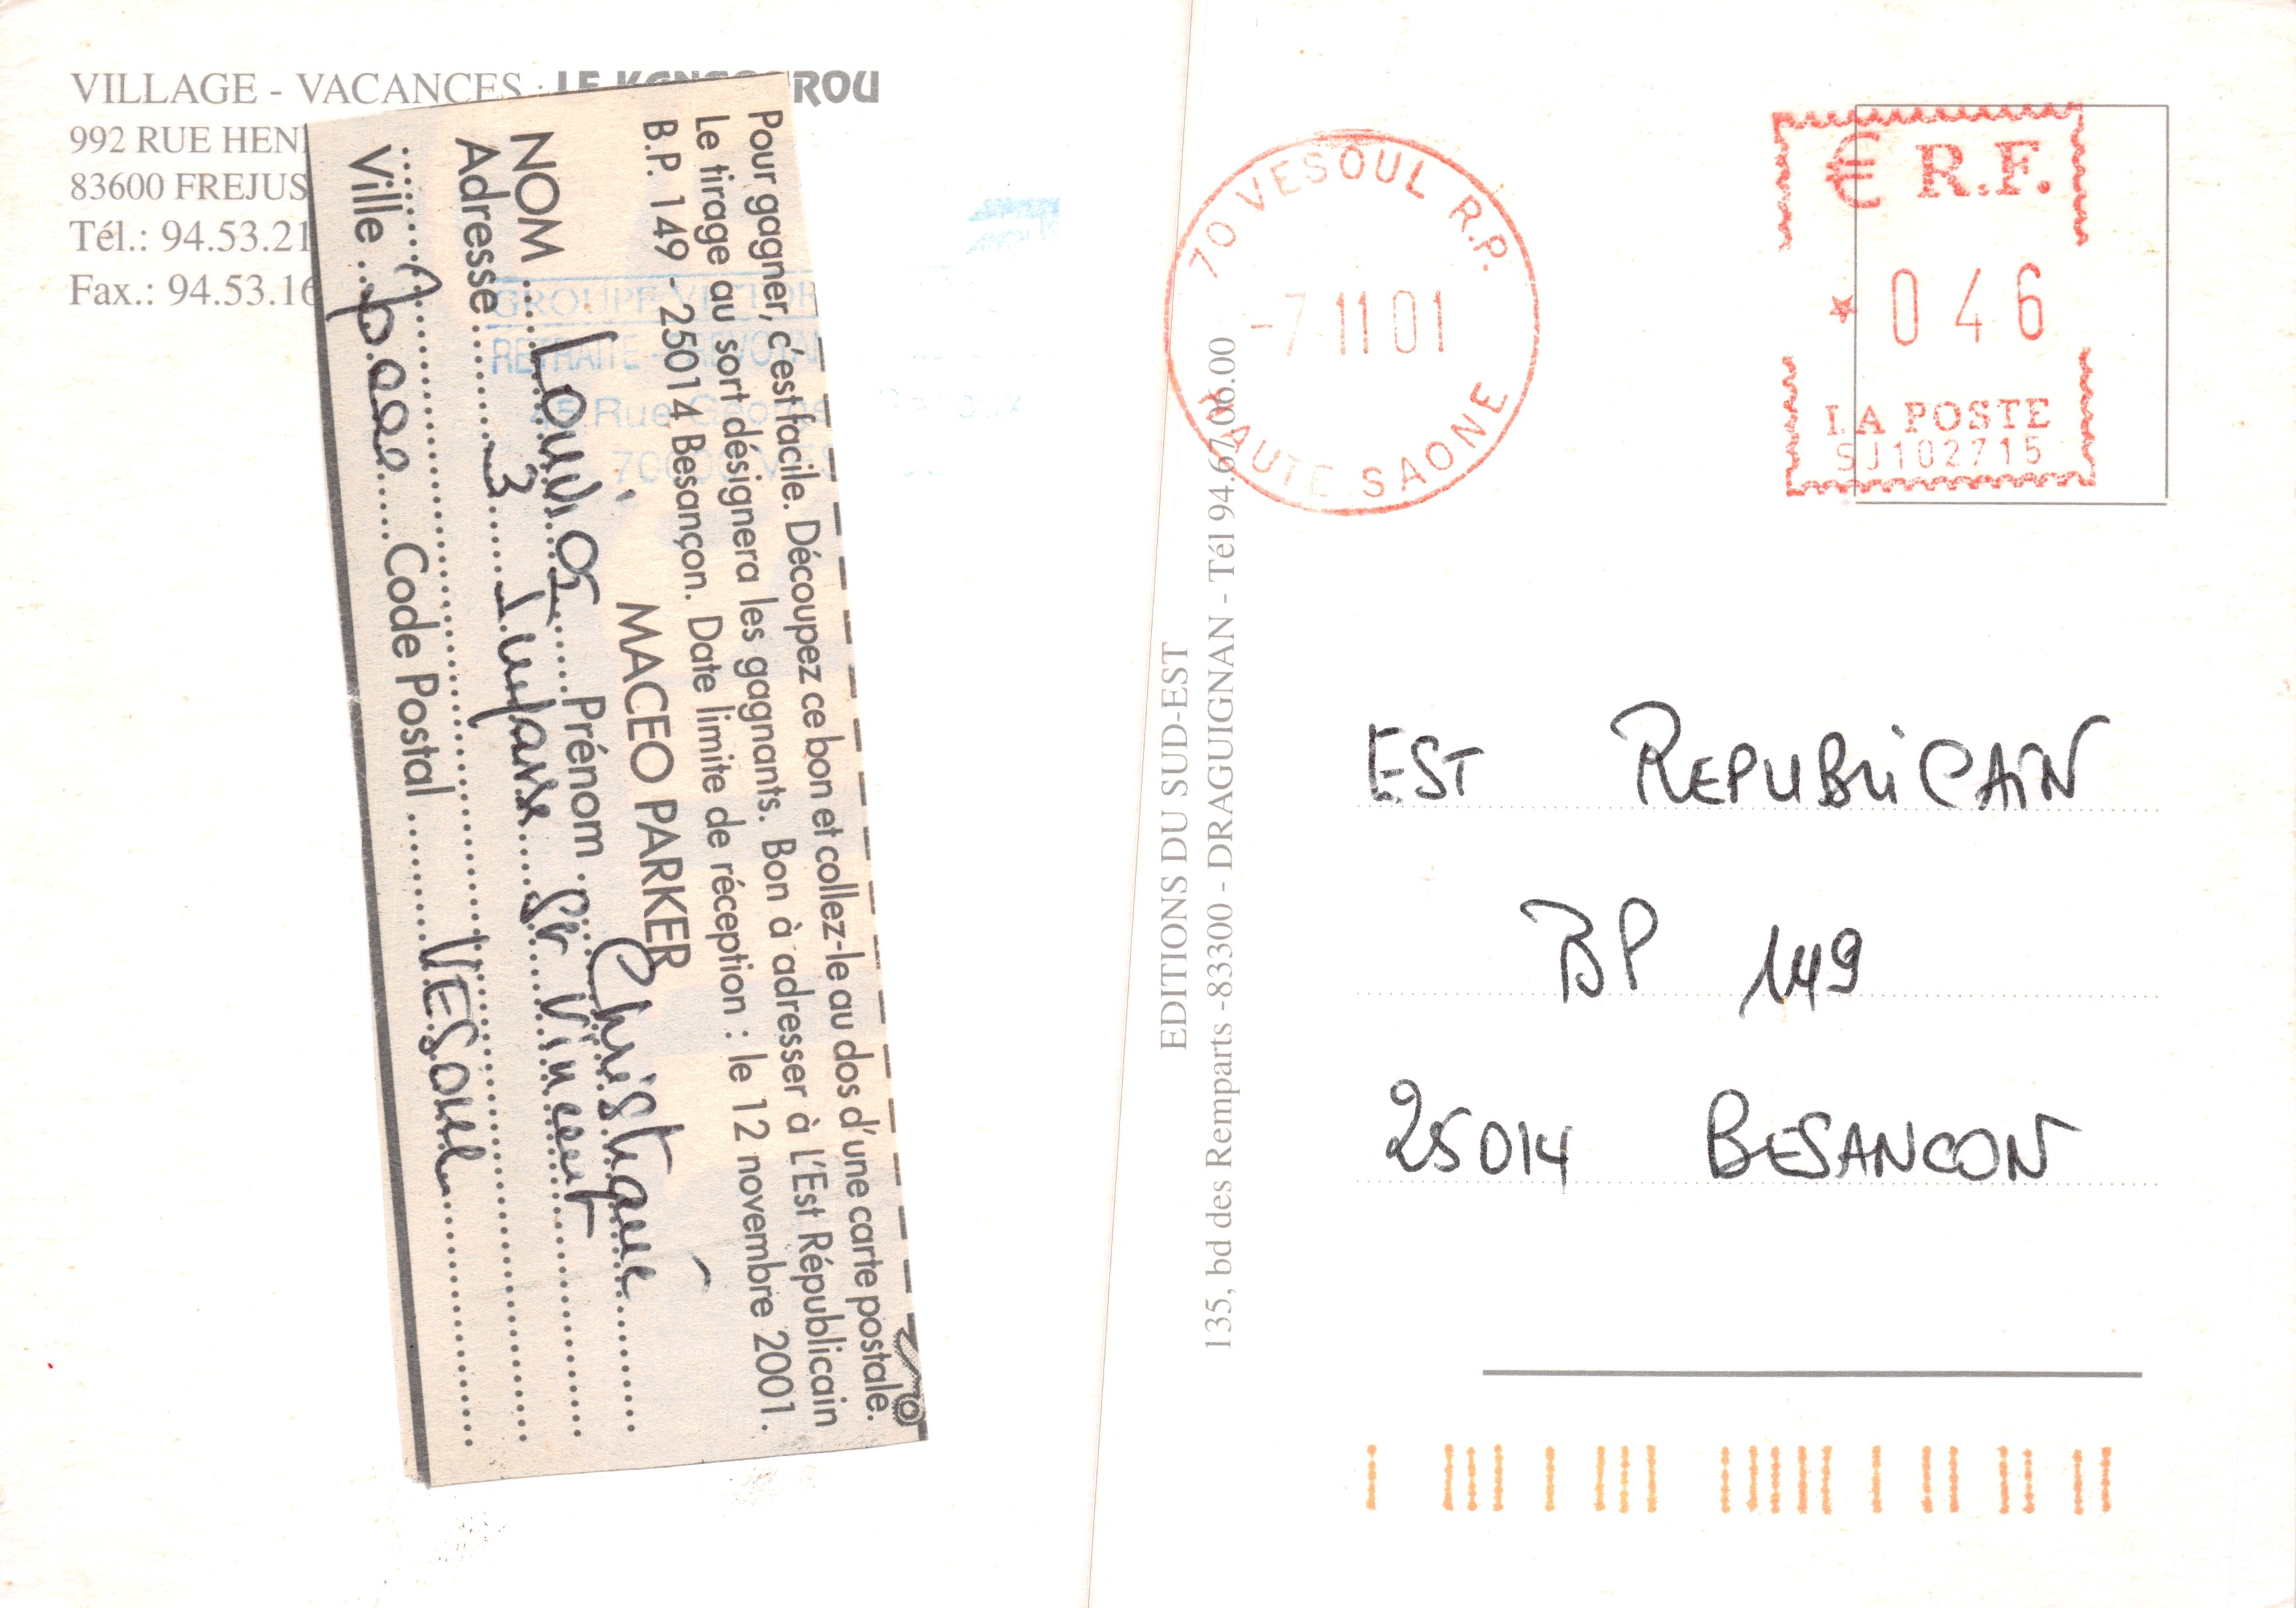 VILLAGE - VACANCES : LE KANGOUROU
992 RUE HEN
83600 FREJUS
Tél.: 94.53.21
Fax.: 94.53.16
Pour gagner, c'est facile. Découpez ce bon et collez-le au dos d'une carte postale.
Le tirage au sort désignera les gagnants. Bon à adresser à L'Est Républicain
B.P. 149 - 25014 Besançon. Date limite de réception : le 12 novembre 2001.
MACEO PARKER
NOM Prénom Christiane
Adresse 3 Impasse St Vincent
Ville Code Postal VESOUL
GROUPE
RETRAITE - PREVOYAN
45 Rue George
70
EDITIONS DU SUD-EST
135, bd des Remparts -83300 - DRAGUIGNAN - Tél 94.67.06.00
70 VESOUL R.P.
-7-11 01
HAUTE SAONE
€ R.F.
* 046
LA POSTE
SJ102715
EST REPUBLICAIN
BP 149
25014 BESANCON